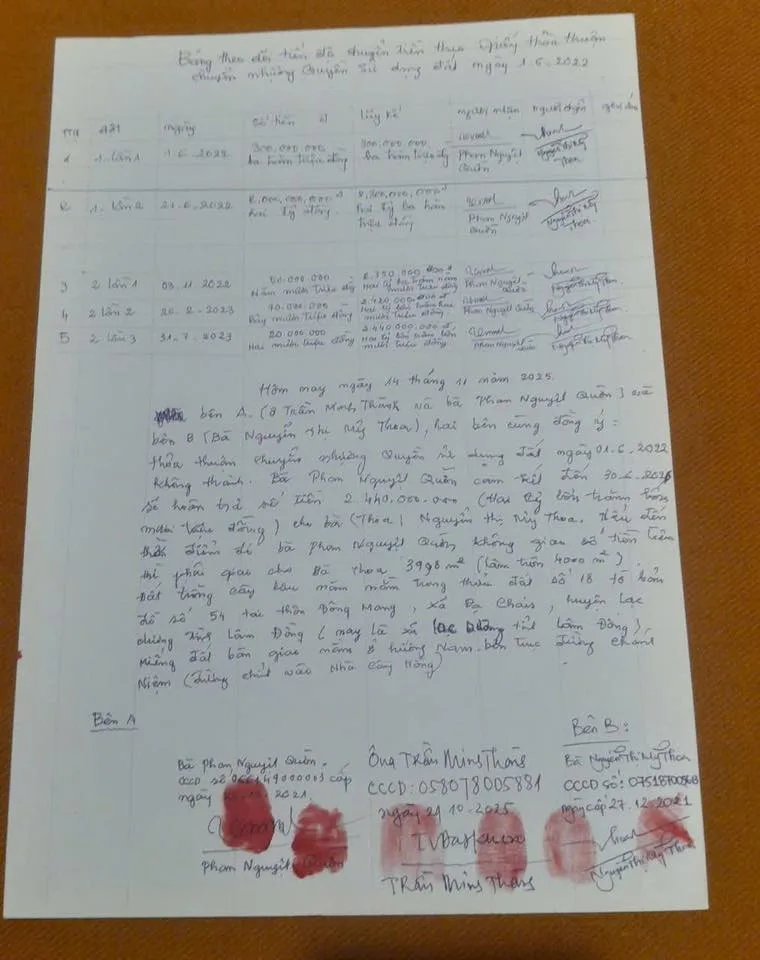 Bảng theo dõi tiến độ chuyển tiền theo Giấy thỏa thuận
chuyển nhượng Quyền sử dụng đất ngày 1.6.2022
TT đợt ngày Số tiền đ lũy kế người nhận người chuyển
1 1. lần 1 1.6.2022 300.000.000 ba trăm triệu đồng 300.000.000 ba trăm triệu đ Phan Nguyệt Quân Nguyễn Thị Mỹ Thoa
2 1. lần 2 21.6.2022 2,000,000,000 đ hai tỷ đồng. 2,300,000,000 đ hai tỷ ba trăm triệu đồng Phan Nguyệt Quân Nguyễn Thị Mỹ Thoa
3 2 lần 1 03.11 2022 50.000.000 Năm mươi triệu đồng 2.350.000.000 đ Hai tỷ ba trăm năm mươi triệu đồng Phan Nguyệt Quân Nguyễn Thị Mỹ Thoa
4 2 lần 2 2023 Bảy mươi triệu đồng 2.420.000.000 đ Hai tỷ bốn trăm hai mươi triệu đồng Phan Nguyệt Quân Nguyễn Thị Mỹ Thoa
5 2 lần 3 31.7.2023 20.000.000 Hai mươi triệu đồng 2.440.000.000 đ Hai tỷ bốn trăm bốn mươi triệu đồng. Phan Nguyệt Quân Nguyễn Thị Mỹ Thoa
Hôm nay ngày 14 tháng 11 năm 2025.
bên A. (Ô Trần Minh Thành và bà Phan Nguyệt Quân) và
bên B (Bà Nguyễn Thị Mỹ Thoa), hai bên cùng đồng ý:
thỏa thuận chuyển nhượng Quyền sử dụng đất ngày 01.6.2022
không thành. Bà Phan Nguyệt Quân cam kết đến 30.6.2026
sẽ hoàn trả số tiền 2.440.000.000 (Hai tỷ bốn trăm bốn
mươi triệu đồng) cho bà (Thoa) Nguyễn Thị Mỹ Thoa. Nếu đến
thời điểm đó bà Phan Nguyệt Quân không giao số tiền trên
thì phải giao cho Bà Thoa 3998 m² (làm tròn 4000 m²).
Đất trồng cây lâu năm nằm trong thửa đất số 18 tờ bản
đồ số 54 tại thôn Đông Mang, xã Đa Chais, huyện Lạc
dương tỉnh Lâm Đồng (nay là xã tỉnh Lâm Đồng)
Miếng đất bàn giao nằm ở hướng Nam bên trục đường chánh
Niệm (đường chút vào Nhà
Bên A
Bên B:
Bà Phan Nguyệt Quân. Ông Trần Minh Thành Bà Nguyễn Thị Mỹ Thoa
CCCD số cấp CCCD: 058078005881 CCCD số:
ngày 2021. ngày 21 10.2025 ngày cấp 27.12.2021
Phan Nguyệt Quân Trần Minh Thành Nguyễn Thị Mỹ Thoa